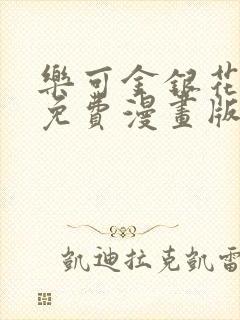 樂可金銀花
免費漫畫版
凱迪拉克凱雷